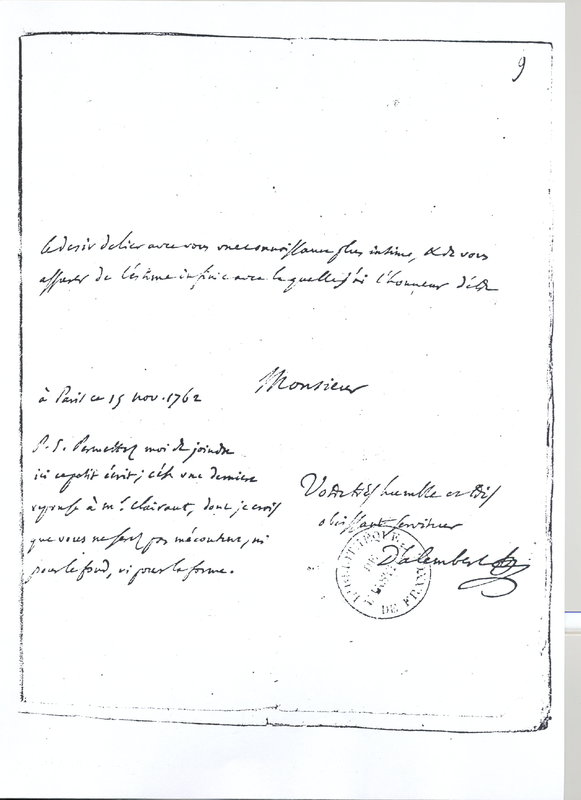 9
le desir de lier avec vous une connoissance plus intime, & de vous
assurer de l'estime infinie avec laquelle j'ai l'honneur d'être
Monsieur
à Paris ce 15 nov. 1762
P.S. Permettez moi de joindre
ici ce petit écrit; c'est une derniere
reponse à mr. Clairaut, dont je crois
que vous ne serez pas mécontent, ni
pour le fond, ni pour la forme.
Votre très humble et très
obeissant serviteur
D'alembert
DE FRANCE